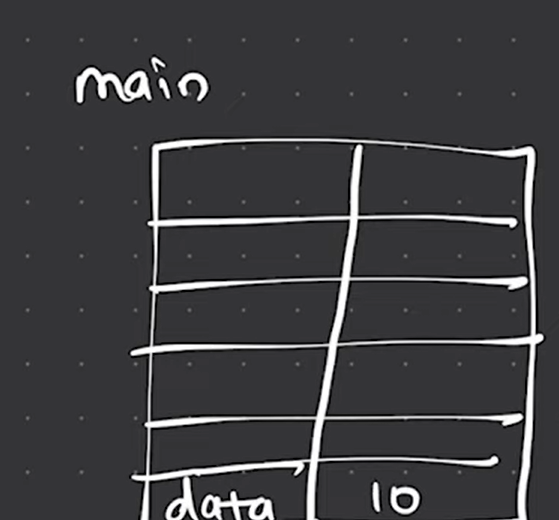 main
data 10